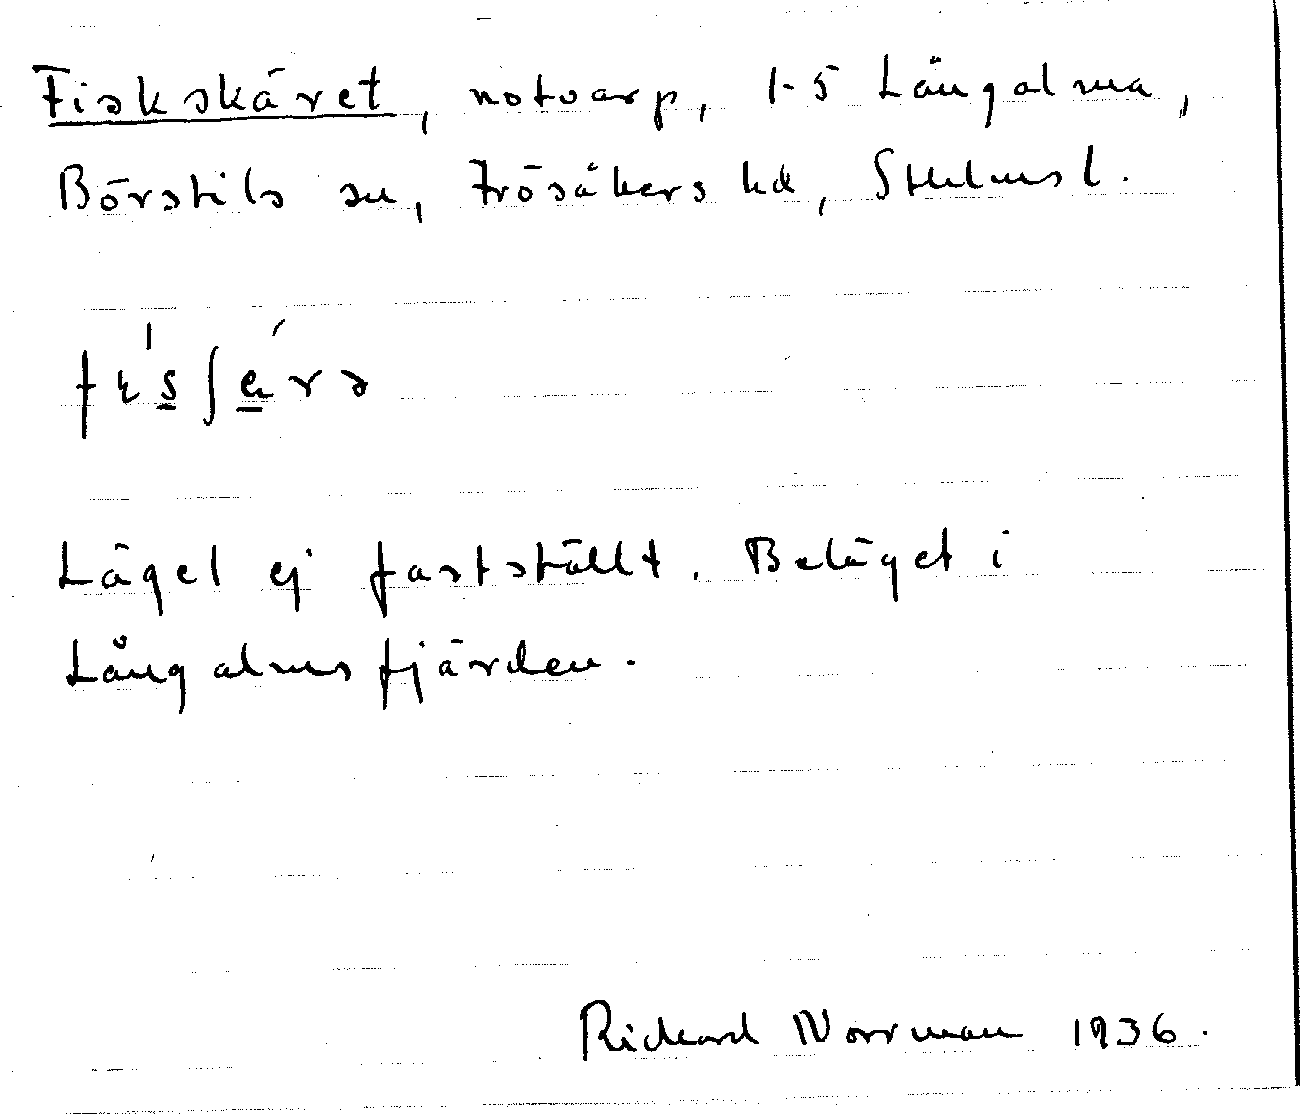 Fiskskäret, notvarp, 1-5 Långalma,
Börstils sn, Frösåkers hd, Sthlms l.
Läget ej fastställt. Beläget i
Långalmsfjärden.
Richard Norrman 1936.